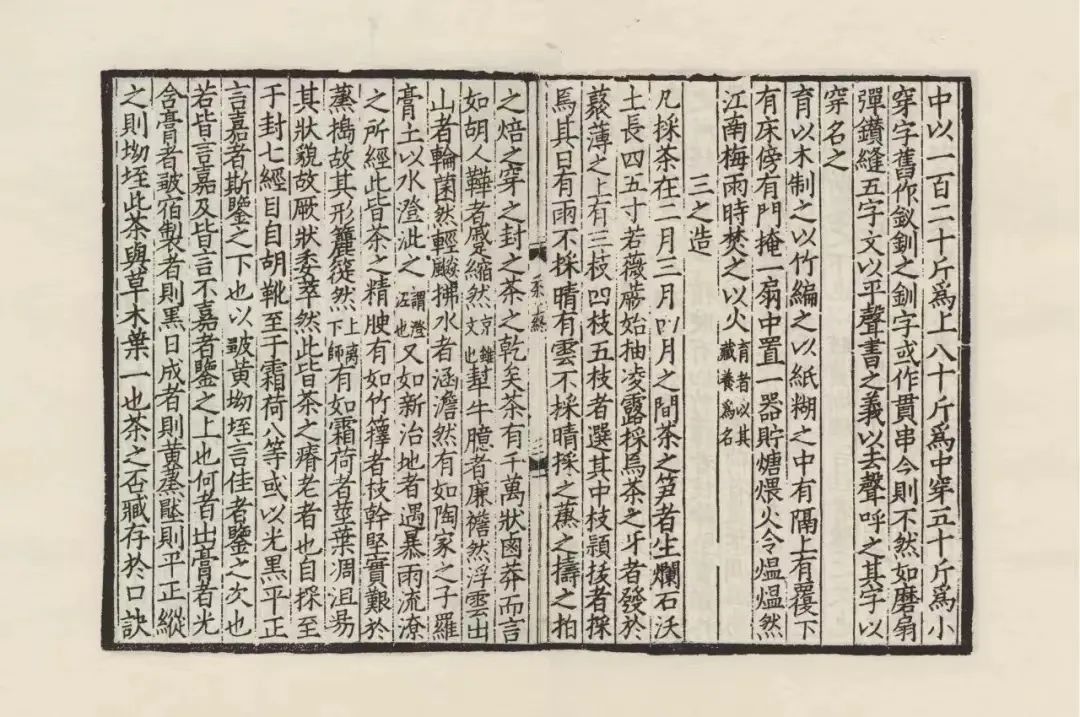 中以一百二十斤爲上八十斤爲中穿五十斤爲小
穿字舊作釵釧之釧字或作貫串今則不然如磨扇
彈鑽縫五字文以平聲書之義以去聲呼之其字以
穿名之
育以木制之以竹編之以紙糊之中有隔上有覆下
有床傍有門掩一扇中置一器貯煻煨火令熅熅然
江南梅雨時焚之以火育者以其藏養爲名
三之造
凡採茶在二月三月四月之間茶之笋者生爛石沃
土長四五寸若薇蕨始抽凌露採焉茶之牙者發於
藂薄之上有三枝四枝五枝者選其中枝穎拔者採
焉其日有雨不採晴有雲不採晴採之蒸之擣之拍
之焙之穿之封之茶之乾矣茶有千萬狀鹵莽而言
如胡人鞾者蹙縮然京錐文也犎牛臆者廉襜然浮雲出
山者輪菌然輕飈拂水者涵澹然有如陶家之子羅
膏土以水澄泚之謂澄泥也又如新治地者遇暴雨流潦
之所經此皆茶之精腴有如竹籜者枝幹堅實艱於
蒸搗故其形籭簁然上離下師有如霜荷者莖葉凋沮易
其狀貌故厥狀委萃然此皆茶之瘠老者也自採至
于封七經目自胡靴至于霜荷八等或以光黑平正
言嘉者斯鑒之下也以皺黃坳垤言佳者鑒之次也
若皆言嘉及皆言不嘉者鑒之上也何者出膏者光
含膏者皺宿製者則黑日成者則黃蒸壓則平正縱
之則坳垤此茶與草木葉一也茶之否臧存於口訣